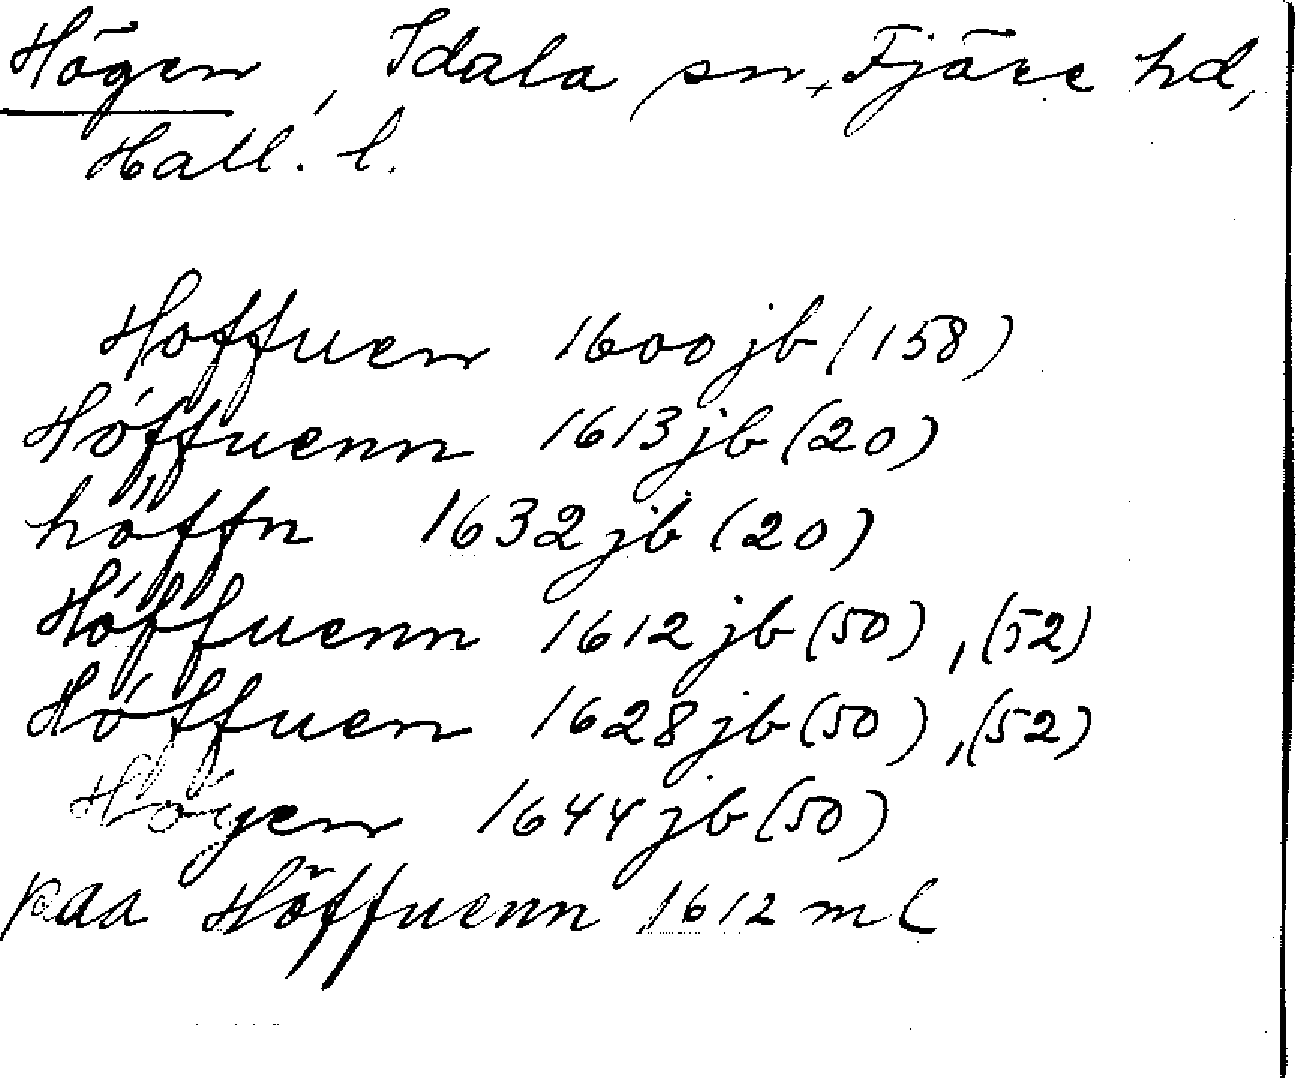 Högen, Idala sn, Fjäre hd,
Hall. l.
Hoffuen 1600 jb (158)
Hóffuenn 1613 jb (20)
höffn 1632 jb (20)
Hóffuenn 1612 jb (50), (52)
Hóffuen 1628 jb (50), (52)
Hógen 1644 jb (50)
paa Höffuenn 1612 ml